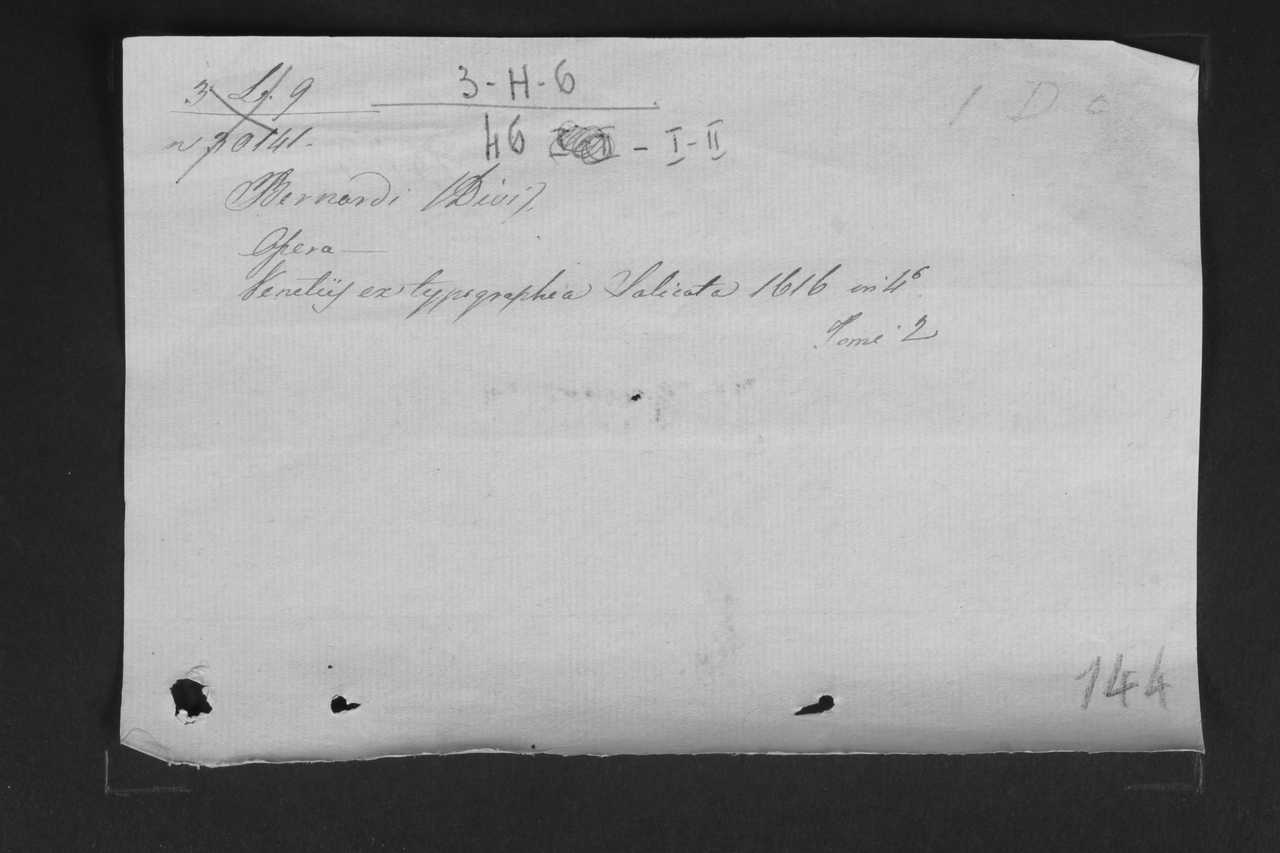 3 Lf. 9
3-H-6
1 D
n 30141.
46 - I-II
Bernardi (Divi).
Opera—
Venetiis ex typographia Salicata 1616 in 4°
Tome 2
144